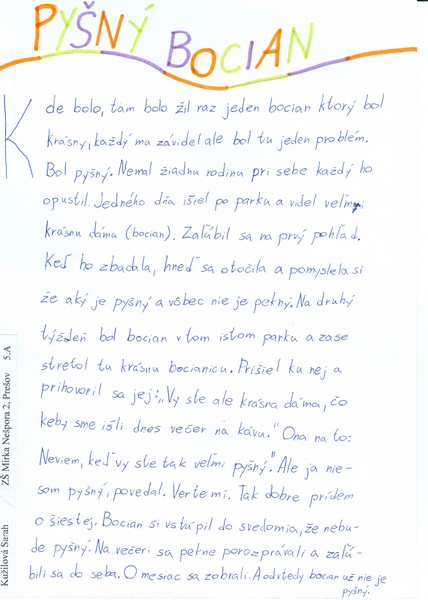 PYŠNÝ BOCIAN
Kde bolo, tam bolo žil raz jeden bocian ktorý bol
krásny, každý mu závidel ale bol tu jeden problém.
Bol pyšný. Nemal žiadnu rodinu pri sebe každý ho
opustil. Jedného dňa išiel po parku a videl veľmi
krásnu dámu (bocian). Zaľúbil sa na prvý pohľad.
Keď ho zbadala, hneď sa otočila a pomyslela si
že aký je pyšný a vôbec nie je pekný. Na druhý
týždeň bol bocian v tom istom parku a zase
stretol tu krásnu bocianicu. Prišiel ku nej a
prihovoril sa jej: „Vy ste ale krásna dáma, čo
keby sme išli dnes večer na kávu." Ona na to:
Neviem, keď vy ste tak veľmi pyšný." Ale ja nie-
som pyšný, povedal. Verte mi. Tak dobre prídem
o šiestej. Bocian si vstúpil do svedomia, že nebu-
de pyšný. Na večeri sa pekne porozprávali a zaľú-
bili sa do seba. O mesiac sa zobrali. A odvtedy bocian už nie je
pyšný.
Kužilová Sarah ZŠ Mirka Nešpora 2, Prešov 5.A